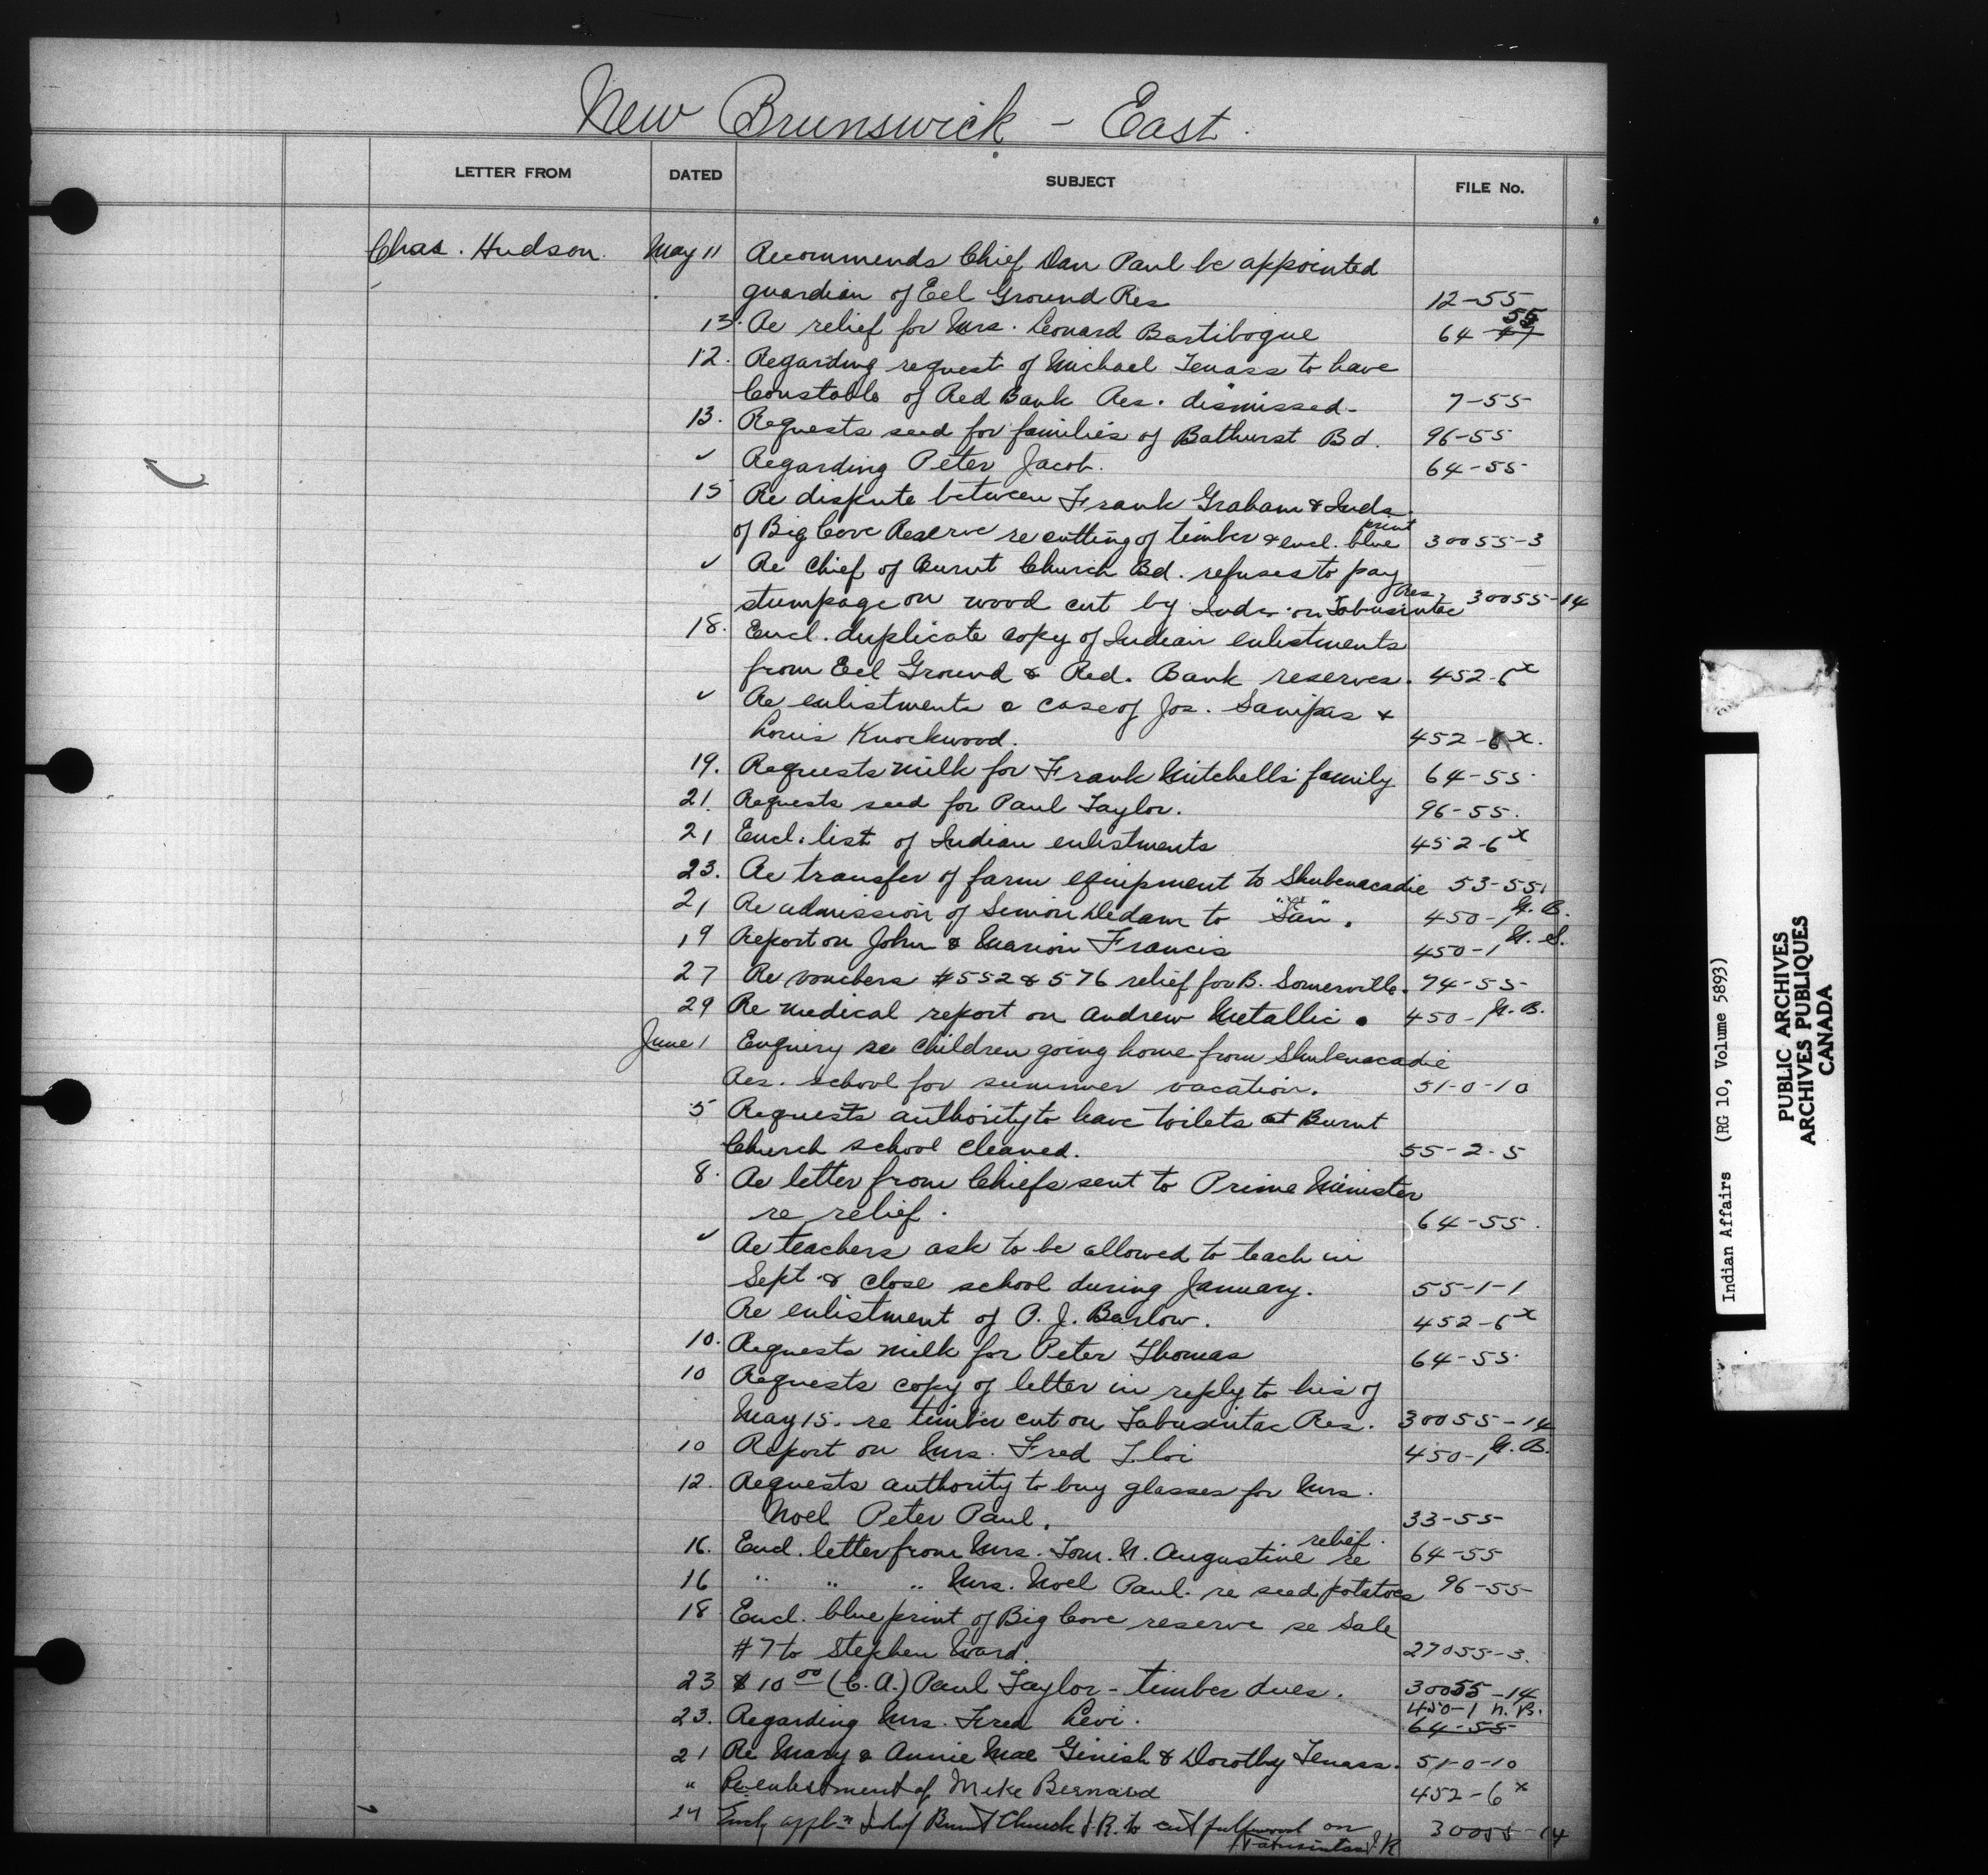 New Brunswick - East.
LETTER FROM DATED SUBJECT FILE No.
Chas. Hudson. May 11 Recommends Chief Dan Paul be appointed
guardian of Eel Ground Res 12-55
13. Re relief for Mrs. Leonard Bartibogue 64-47 55
12. Regarding request of Michael Tenass to have
Constable of Red Bank Res. dismissed- 7-55
13. Requests seed for families of Bathurst Bd. 96-55
✓ Regarding Peter Jacob. 64-55
15 Re dispute between Frank Graham & Inds.
of Big Cove Reserve re cutting of timber & encl. blue print 30055-3
✓ Re Chief of Burnt Church Bd. refuses to pay
stumpage on wood cut by Inds. on Tabusintac Res. 30055-14
18. Encl. duplicate copy of Indian enlistments
from Eel Ground & Red. Bank reserves. 452-6x
✓ Re enlistments & case of Jos. Sanipas &
Louis Knockwood. 452-6x.
19. Requests milk for Frank Mitchell's family 64-55
21. Requests seed for Paul Taylor. 96-55.
21 Encl. list of Indian enlistments 452-6x
23. Re transfer of farm equipment to Shubenacadie 53-55
21 Re admission of Simon Dedam to "San". 450-1 N.B.
19 Report on John & Marion Francis 450-1 N.S.
27 Re vouchers #552 & 576 relief for B. Somerville. 74-55
29 Re medical report on Andrew Metallic. 450-1 N.B.
June 1 Enquiry re children going home from Shubenacadie
Res. school for summer vacation. 51-0-10
5 Requests authority to have toilets at Burnt
Church school cleaned. 55-2-5
8. Re letter from Chiefs sent to Prime Minister
re relief. 64-55.
✓ Re teachers ask to be allowed to teach in
Sept & close school during January. 55-1-1
Re enlistment of P. J. Barlow. 452-6x
10. Requests milk for Peter Thomas 64-55
10 Requests copy of letter in reply to his of
May 15. re timber cut on Tabusintac Res. 30055-14
10 Report on Mrs. Fred 450-1 N.B.
12. Requests authority to buy glasses for Mrs.
Noel Peter Paul. 33-55
16. Encl. letter from Mrs. Tom. N. Augustine re relief. 64-55
16 " " " Mrs. Noel Paul. re seed potatoes 96-55
18 Encl. blue print of Big Cove reserve re Sale
#7 to Stephen Ward. 27055-3.
23 $10 00 (C.A.) Paul Taylor - timber dues. 30055-14
23. Regarding Mrs. Fred Levi. 450-1 N.B. 64-55
21 Re Mary & Annie Mae Ginish & Dorothy Tenass. 51-0-10
" Re enlistment of Mike Bernard 452-6x
24 Encl. appl'n Ind of Burnt Church I.R. to cut pulpwood on
Tabusintac I.R 30055-14
Indian Affairs (RG 10, Volume 5893)
PUBLIC ARCHIVES
ARCHIVES PUBLIQUES
CANADA